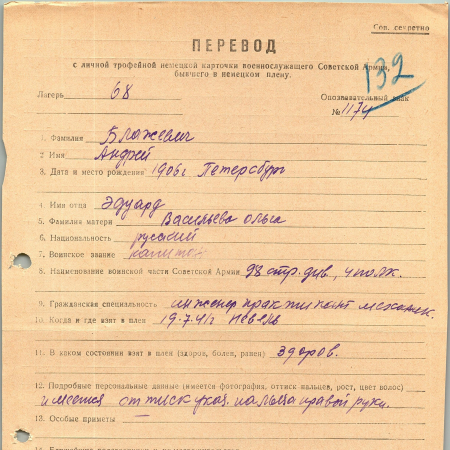 Сов. секретно
ПЕРЕВОД
с личной трофейной немецкой карточки военнослужащего Советской Армии,
бывшего в немецком плену.
132
Лагерь 68
Опознавательный знак
№ 1174
1. Фамилия Блажевич
2. Имя Андрей
3. Дата и место рождения 1906г Петербург
4. Имя отца Эдуард
5. Фамилия матери Васильева Ольга
6. Национальность русский
7. Воинское звание капитан
8. Наименование воинской части Советской Армии 98 стр. див.,
9. Гражданская специальность инженер практикант механик.
10. Когда и где взят в плен 19.7.41г Невель
11. В каком состоянии взят в плен (здоров, болен, ранен) здоров.
12. Подробные персональные данные (имеется фотография, оттиск пальцев, рост, цвет волос)
имеется оттиск указ. пальца правой руки.
13. Особые приметы